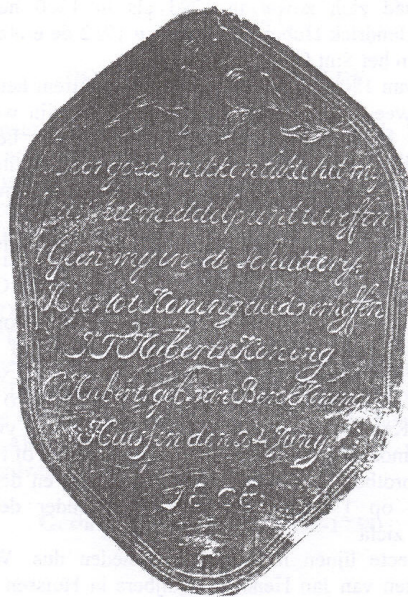 Door goed mikken lukte het my
Juist het middelpunt te treffen
't Geen my in de schuttery
Hier tot Koning deed verheffen
Huberts Koning
C Huberts geb. van Benk Koningin
Huissen den 24 Juny
1808